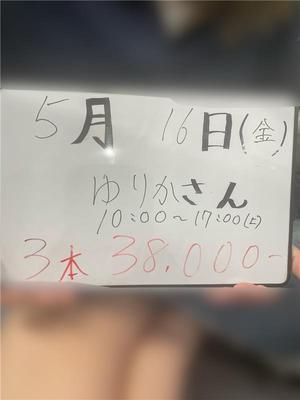 5月 16日(金)
ゆりかさん
10:00～17:00(土)
3本 38.000-